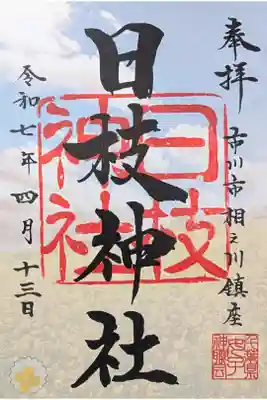 奉拝
市川市相之川鎮座
日枝神社
日枝神社
令和七年四月十三日